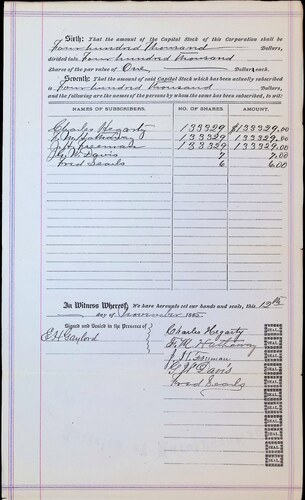 Sixth: That the amount of the Capital Stock of this Corporation shall be
Four hundred Thousand Dollars,
divided into Four hundred thousand
shares of the par value of One Dollars each.
Seventh: That the amount of said Capital Stock which has been actually subscribed
is Four hundred thousand Dollars,
and the following are the names of the persons by whom the same has been subscribed, to wit:
NAMES OF SUBSCRIBERS. NO. OF SHARES. AMOUNT.
Charles Hegarty 133329 $133329.00
133329 133329.00
J. M. Freeman 133329 133329.00
Geo W. Davis 7 7.00
Fred Searls 6 6.00
In Witness Whereof, We have hereunto set our hands and seals, this 12th
day of November 1885.
Signed and Sealed in the Presence of
E H Gaylord
Charles Hegarty SEAL.
F. M. Hathaway SEAL.
J. M. Freeman SEAL.
G. W. Davis SEAL.
Fred Searls SEAL.
SEAL.
SEAL.
SEAL.
SEAL.
SEAL.